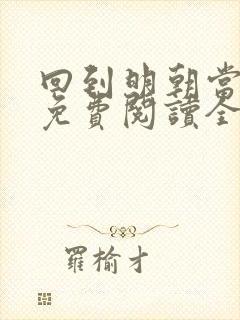 回到明朝當
免費閱讀全
羅榆才